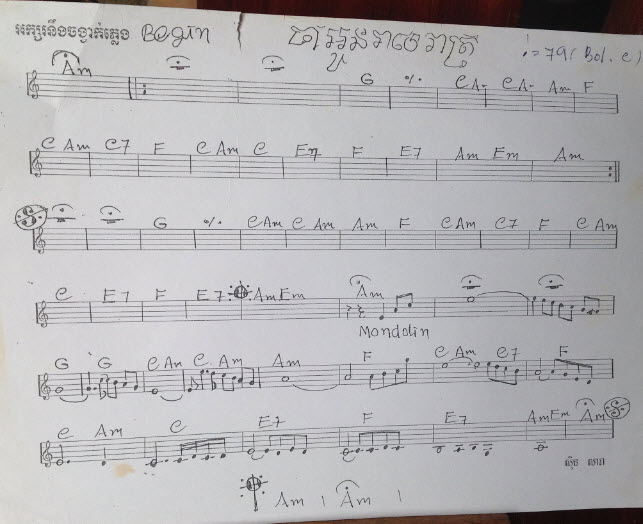 អក្សរនឹងចង្វាក់ភ្លេង Begin = 79 ( Bol. c )
Am G % C A- C A- Am F
C Am C7 F C Am C E7 F E7 Am Em Am
G % C Am C Am Am F C Am C7 F C Am
C E7 F E7 Am Em Am
Mandolin
G G C Am C Am Am F C Am C7 F
C Am C E7 F E7 Am Em Am
Am | Am |